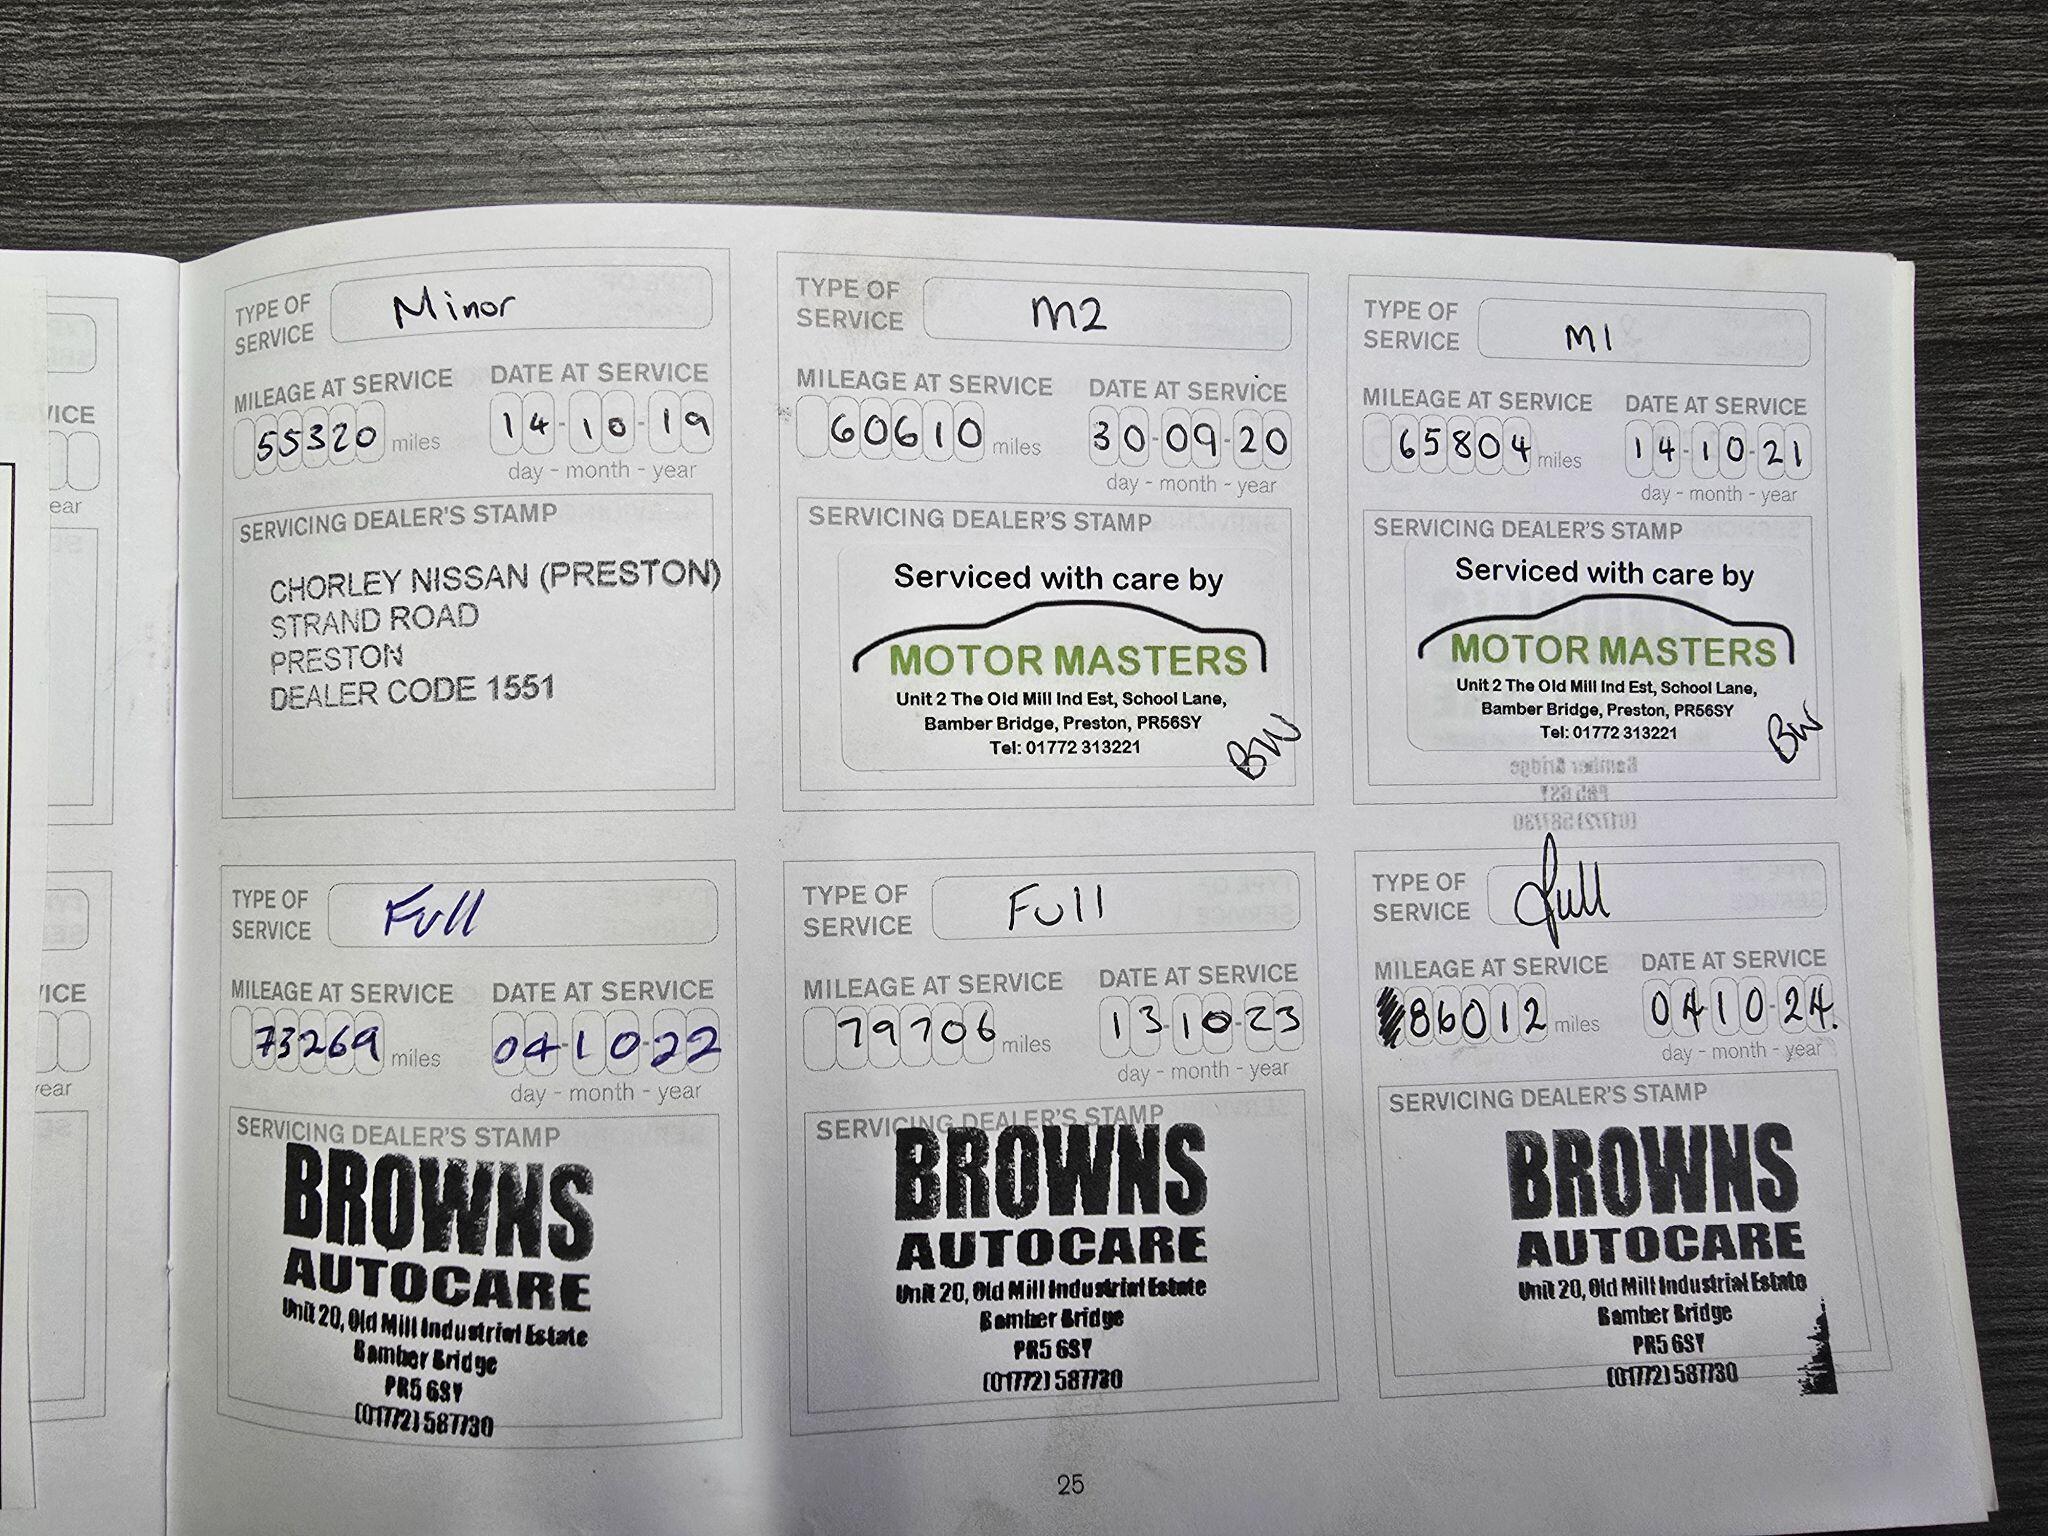 TYPE OF SERVICE Minor
MILEAGE AT SERVICE DATE AT SERVICE
55320 miles 14-10-19
day - month - year
SERVICING DEALER'S STAMP
CHORLEY NISSAN (PRESTON)
STRAND ROAD
PRESTON
DEALER CODE 1551
TYPE OF SERVICE M2
MILEAGE AT SERVICE DATE AT SERVICE
60610 miles 30-09-20
day - month - year
SERVICING DEALER'S STAMP
Serviced with care by
MOTOR MASTERS
Unit 2 The Old Mill Ind Est, School Lane,
Bamber Bridge, Preston, PR56SY
Tel: 01772 313221
BW
TYPE OF SERVICE M1
MILEAGE AT SERVICE DATE AT SERVICE
65804 miles 14-10-21
day - month - year
SERVICING DEALER'S STAMP
Serviced with care by
MOTOR MASTERS
Unit 2 The Old Mill Ind Est, School Lane,
Bamber Bridge, Preston, PR56SY
Tel: 01772 313221
BW
TYPE OF SERVICE Full
MILEAGE AT SERVICE DATE AT SERVICE
73269 miles 04-10-22
day - month - year
SERVICING DEALER'S STAMP
BROWNS
AUTOCARE
Unit 20, Old Mill Industrial Estate
Bamber Bridge
PR5 6SY
(01772) 587730
TYPE OF SERVICE Full
MILEAGE AT SERVICE DATE AT SERVICE
79706 miles 13-10-23
day - month - year
SERVICING DEALER'S STAMP
BROWNS
AUTOCARE
Unit 20, Old Mill Industrial Estate
Bamber Bridge
PR5 6SY
(01772) 587730
TYPE OF SERVICE full
MILEAGE AT SERVICE DATE AT SERVICE
86012 miles 04-10-24.
day - month - year
SERVICING DEALER'S STAMP
BROWNS
AUTOCARE
Unit 20, Old Mill Industrial Estate
Bamber Bridge
PR5 6SY
(01772) 587730
25